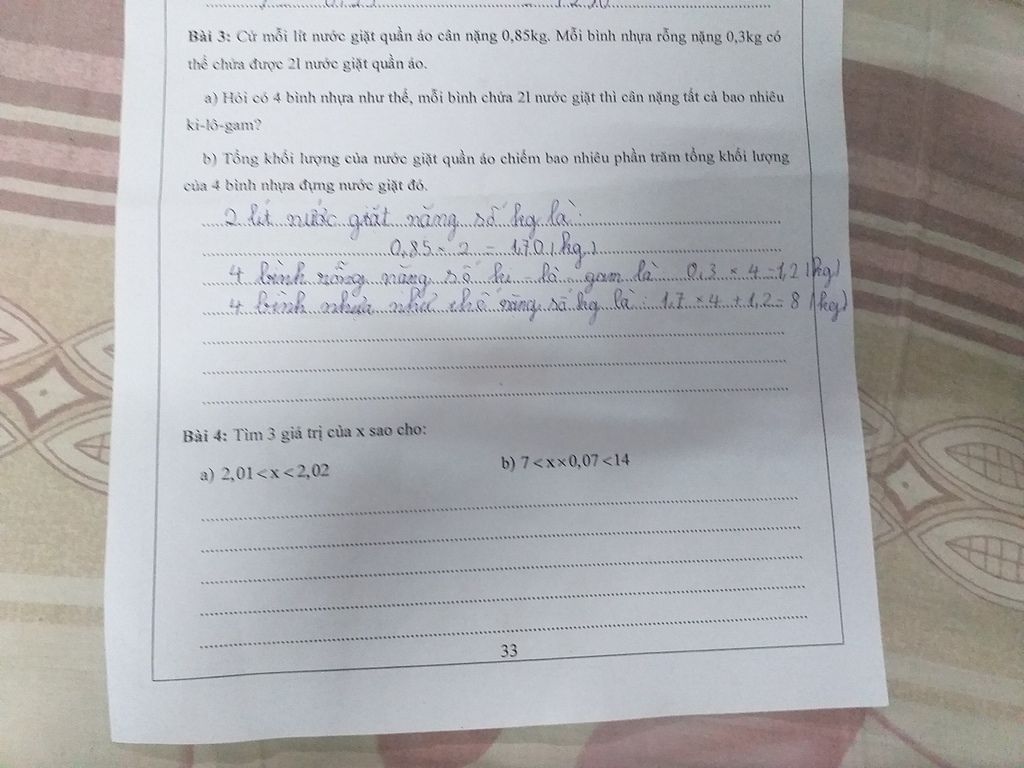 0,125 1,250
Bài 3: Cứ mỗi lít nước giặt quần áo cân nặng 0,85kg. Mỗi bình nhựa rỗng nặng 0,3kg có
thể chứa được 2l nước giặt quần áo.
a) Hỏi có 4 bình nhựa như thế, mỗi bình chứa 2l nước giặt thì cân nặng tất cả bao nhiêu
ki-lô-gam?
b) Tổng khối lượng của nước giặt quần áo chiếm bao nhiêu phần trăm tổng khối lượng
của 4 bình nhựa đựng nước giặt đó.
2 lít nước giặt nặng số kg là:
0,85 × 2 = 1,70 (kg)
4 bình rỗng nặng số ki - lô - gam là 0,3 × 4 = 1,2 (kg)
4 bình nhựa như thế nặng số kg là: 1,7 × 4 + 1,2 = 8 (kg)
Bài 4: Tìm 3 giá trị của x sao cho:
a) 2,01 < x < 2,02 b) 7 < x × 0,07 < 14
33